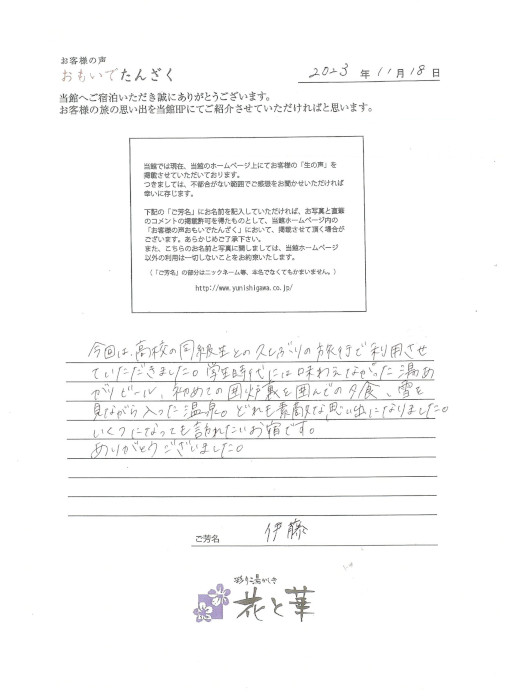 お客様の声
おもいでたんざく
2023 年 11 月 18 日
当館へご宿泊いただき誠にありがとうございます。
お客様の旅の思い出を当館HPにてご紹介させていただければと思います。
当館では現在、当館のホームページ上にてお客様の「生の声」を
掲載させていただいております。
つきましては、不都合がない範囲でご感想をお聞かせいただければ
幸いに存じます。
下記の「ご芳名」にお名前を記入していただければ、お写真と直筆
のコメントの掲載許可を得たものとして、当館ホームページ内の
「お客様の声おもいでたんざく」において、掲載させて頂く場合が
ございます。あらかじめご了承下さい。
また、こちらのお名前と写真に関しましては、当館ホームページ
以外の利用は一切しないことをお約束いたします。
(「ご芳名」の部分はニックネーム等、本名でなくてもかまいません。)
http://www.yunishigawa.co.jp/
今回は、高校の同級生との久しぶりの旅行で利用させ
ていただきました。学生時代には味わえなかった湯あ
がりビール、初めての囲炉裏を囲んでの夕食、雪を
見ながら入った温泉。どれも素敵な思い出になりました。
いくつになっても訪れたいお宿です。
ありがとうございました。
ご芳名 伊藤
彩り湯かしき
花と華